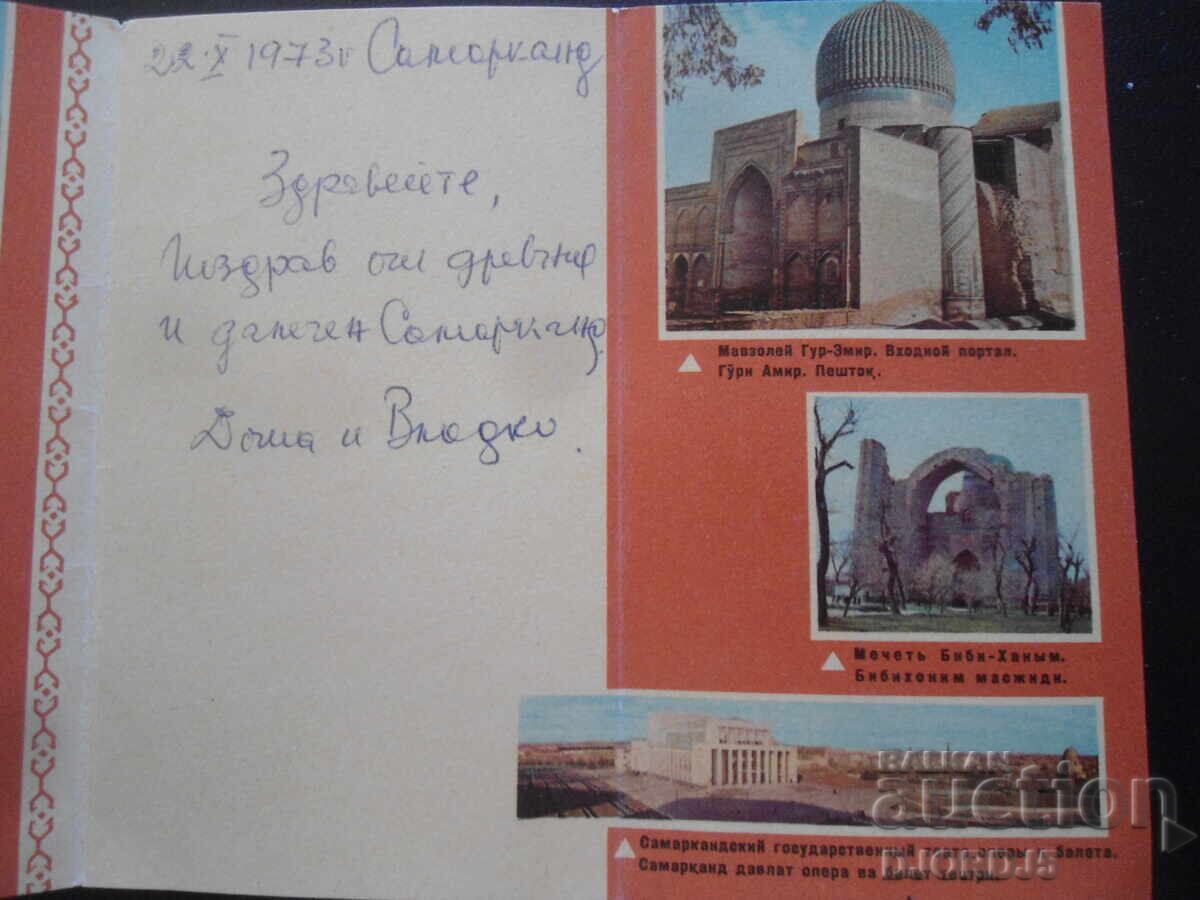 22·X 1973г Самарканд
Здравейте,
Поздрав от древния
и далечен Самарканд
и Владко.
Мавзолей Гур-Эмир. Входной портал.
Гўри Амир. Пештоқ.
Мечеть Биби-Ханым.
Бибихоним масжиди.
Самаркандский государственный театр оперы и балета.
Самарқанд давлат опера ва балет театри.
BALKAN
auction
DJORDJ5